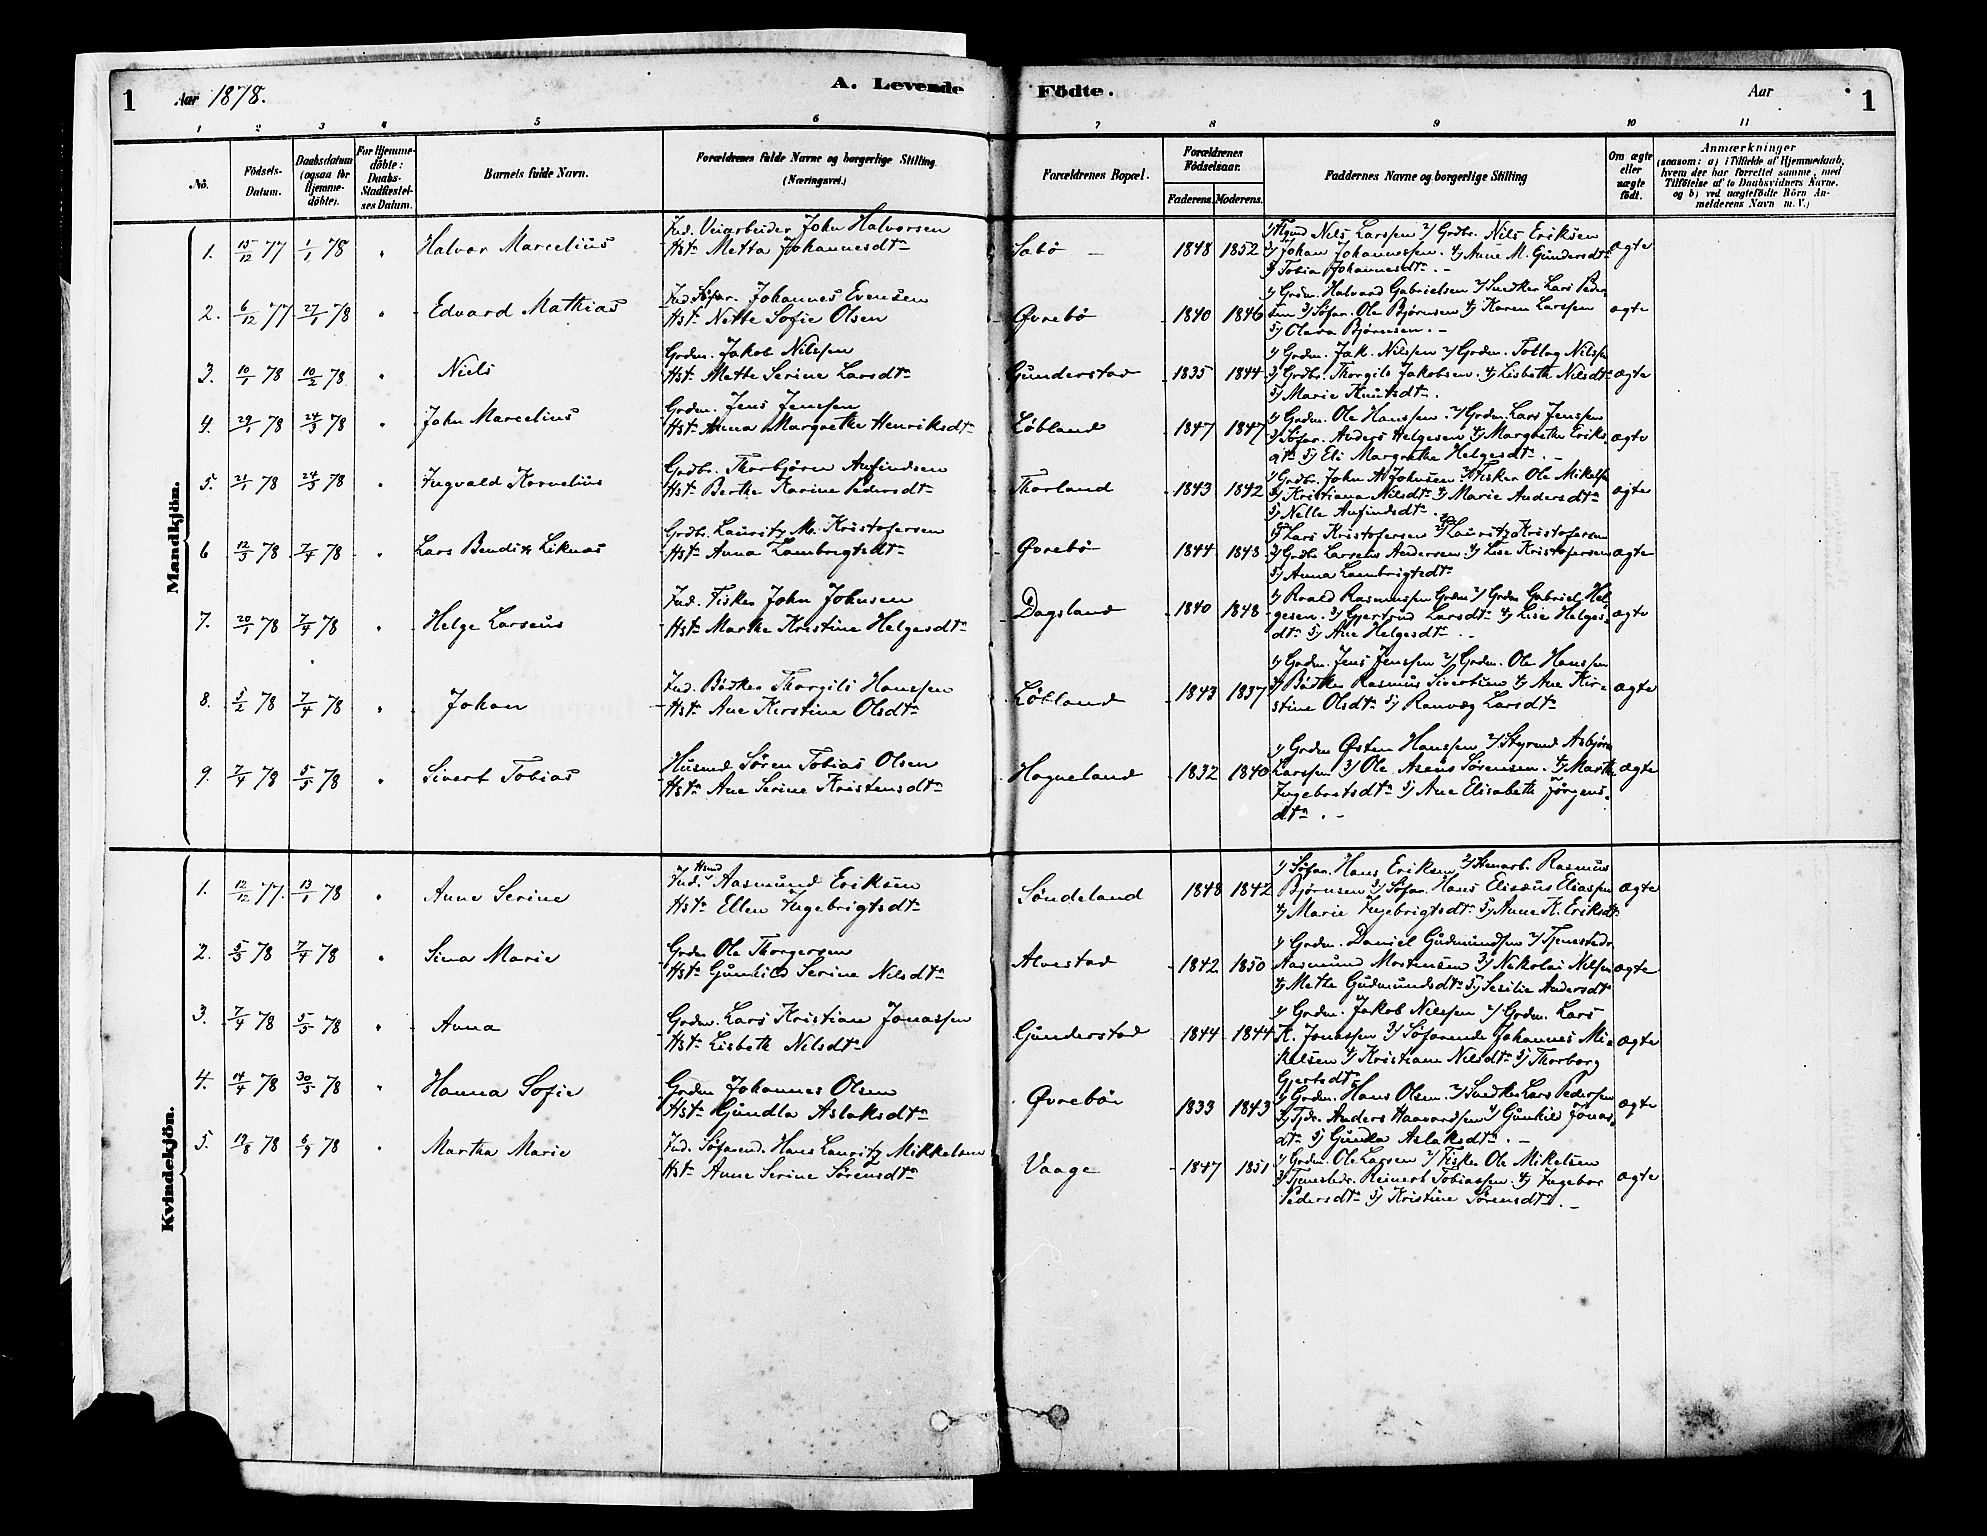 1 Aar 1878. A. Levende Födte. Aar 1
1 2 3 4 5 6 7 8 9 10 11
No. Födsels-Datum. Daabsdatum (ogsaa for Hjemme-döbte). For Hjemme-döbte: Daabs-Stadfæstel-ses Datum. Barnets fulde Navn. Forældrenes fulde Navne og borgerlige Stilling. (Næringsvei.) Forældrenes Bopæl. Forældrenes Födselsaar. Faderens. Moderens. Faddernes Navne og borgerlige Stilling Om ægte eller uægte födt. Anmærkninger (saasom: a) i Tilfælde af Hjemmedaab, hvem der har forrettet samme, med Tilföielse af to Daabsvidners Navne, og b) ved uægtefödte Börn An-melderens Navn m. V.)
Mandkjön.
1. 15/12 77 1/1 78 " Halvor Marcelius
Ind. Veiarbeider John Halvorsen
Hst. Metta Johannesdtr
Sabö - 1848 1852
Nils Larssen 2) Grdbr. Nils Eriksen
3) Johan Johannessen. 4) Anne M. Gundersdtr
5) Tobia Johannesdtr. -
ægte
2. 6/12 77 27/1 78 " Edvard Mathias
Ind. Söfar. Johannes Evensen
Hst. Nette Sofie Olsen
Øvrebö 1840 1846
1) Grdm. Halvard Gabrielsen 2) Snedker Lars Peder-
sen 3) Söfar. Ole Bjørnsen 4) Karen Larssen
5) Olava Bjørnsen. -
ægte
3. 10/1 78 10/2 78 " Niels
Grdm. Jakob Nilssen
Hst. Mette Serine Larsdtr
Gunderstad 1835 1844
1) Grdm. Jak. Nilssen 2) Grdm. Tollag Nilssen
3) Grdbr. Thorgils Jakobsen. 4) Lisbeth Nilsdtr
5) Marie Knutsdtr.
ægte
4. 29/1 78 24/3 78 " John Marcelius
Grdm. Jens Jenssen
Hst. Anna Margrethe Henriksdtr
Löbland 1847 1847
1) Grdm. Ole Hanssen. 2) Grdm. Lars Jenssen
3) Söfar. Anders Helgesen 4) Margrethe Eriks-
dtr 5) Eli Margrethe Helgesdtr. -
ægte
5. 21/1 78 24/3 78 " Ingvald Kornelius
Grdbr. Thorbjören Anfindsen
Hst. Berthe Karine Pedersdtr
Thorland 1843 1842
1) Grdbr. John A. Johnsen 2) Fisker Ole Mikelsen
3) Kristiana Nilsdtr 4) Marie Andersdtr
5) Nelle Anfindsdtr.
ægte
6 12/3 78 7/4 78 " Lars Bendik Liknæs
Grdbr. Lauritz M. Kristofersen
Hst. Anna Lambregtsdtr
Øvrebö 1844 1848
1) Lars Kristofersen 2) Lauritz Kristofersen
3) Grdbr. Larseus Andersen 4) Lise Kristofersen
5) Anna Lambrigtsdtr
ægte
7. 20/1 78 7/4 78 " Helge Larseus
Ind. Fisker John Johnsen
Hst. Marthe Kristine Helgesdtr
Dagsland 1840 1848
1) Roald Rasmussen Grdm 2) Grdm Gabriel Hel-
gesen. 3) Gjertrud Larsdtr 4) Lise Helges-
dtr 5) Ane Helgesdtr. -
ægte
8. 5/2 78 7/4 78 " Johan
Ind. Bödker Thorgils Hanssen
Hst. Ane Kirstine Olsdtr
Löbland 1843 1837
1) Grdm. Jens Jenssen 2) Grdm. Ole Hanssen
3) Bödker Rasmus Sivertsen 4) Ane Kir-
stine Olsdtr 5) Ranveg Larsdtr
ægte
9. 7/4 78 5/5 78 " Sivert Tobias
Husmd Sören Tobias Olsen
Hst. Ane Serine Kristensdtr
Hogneland 1832 1840
1) Grdm Østen Hanssen 2) Styrmd Asbjørn
Larssen 3) Ole Aseus Sörensen. 4) Marthe
Ingebretsdtr 5) Ane Elisabeth Jörgens-
dtr. -
ægte
Kvindekjön.
1. 12/12 77. 13/1 78 " Anne Serine
Ind. Hsmd Aasmund Eriksen
Hst. Ellen Ingebrigtsdtr
Söndeland 1848 1842
1) Söfar. Hans Eriksen 2) Stenarb. Rasmus
Bjørnsen 3) Söfar. Hans Elisæus Eliassen
4) Marie Ingebrigtsdtr 5) Anne K. Eriksdtr
ægte
2. 5/3 78 7/4 78 " Sina Marie
Grdm Ole Thorgersen
Hst. Gunhild Serine Nilsdtr
Alvestad 1842 1850
1) Grdm. Daniel Gudmundsen 2) Tjenestedr.
Aasmund Mortensen 3) Nikolai Nilssen
4) Methe Gudmundsdtr 5) Sesilie Andersdtr
ægte
3. 7/4 78 5/5 78 " Anna
Grdm. Lars Kristian Jonassen
Hst. Lisbeth Nilsdtr
Gunderstad 1844 1844
1) Grdm. Jakob Nilssen 2) Grdm. Lars
K. Jonassen 3) Söfarende Johannes Mi-
kelsen 4) Kristiane Nilsdtr 5) Thorborg
Gjertsdtr
ægte
4. 14/4 78 30/5 78 " Hanna Sofie
Grdm Johannes Olsen
Hst. Gundla Aslaksdtr
Øvrebö 1833 1843
1) Grdm. Hans Olsen. 2) Snedker Lars Pedersen
3) Tjdr. Anders Haavardssen 4) Gunhild Jonas-
dtr 5) Gunda Aslaksdtr. -
ægte
5. 19/8 78 6/9 78 " Martha Marie
Ind. Söfarend. Hans Lauritz Mikkelsen
Hst. Anne Serine Sörensdtr
Vaage 1847 1851
1) Grdm. Ole Larsen 2) Fisker Ole Mikelsen
3) Tjenestedr. Reinert Tobiassen. 4) Ingebor
Pedersdtr 5) Kristine Sörensdtr. -
ægte